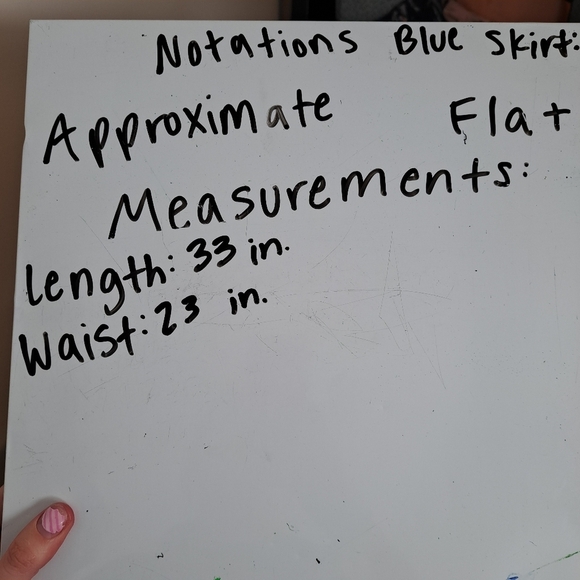 Notations Blue Skirt:
Approximate Flat
Measurements:
Length: 33 in.
Waist: 23 in.